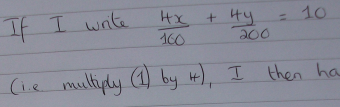 If I write 4x/160 + 4y/200 = 10
(i.e multiply (1) by 4), I then ha